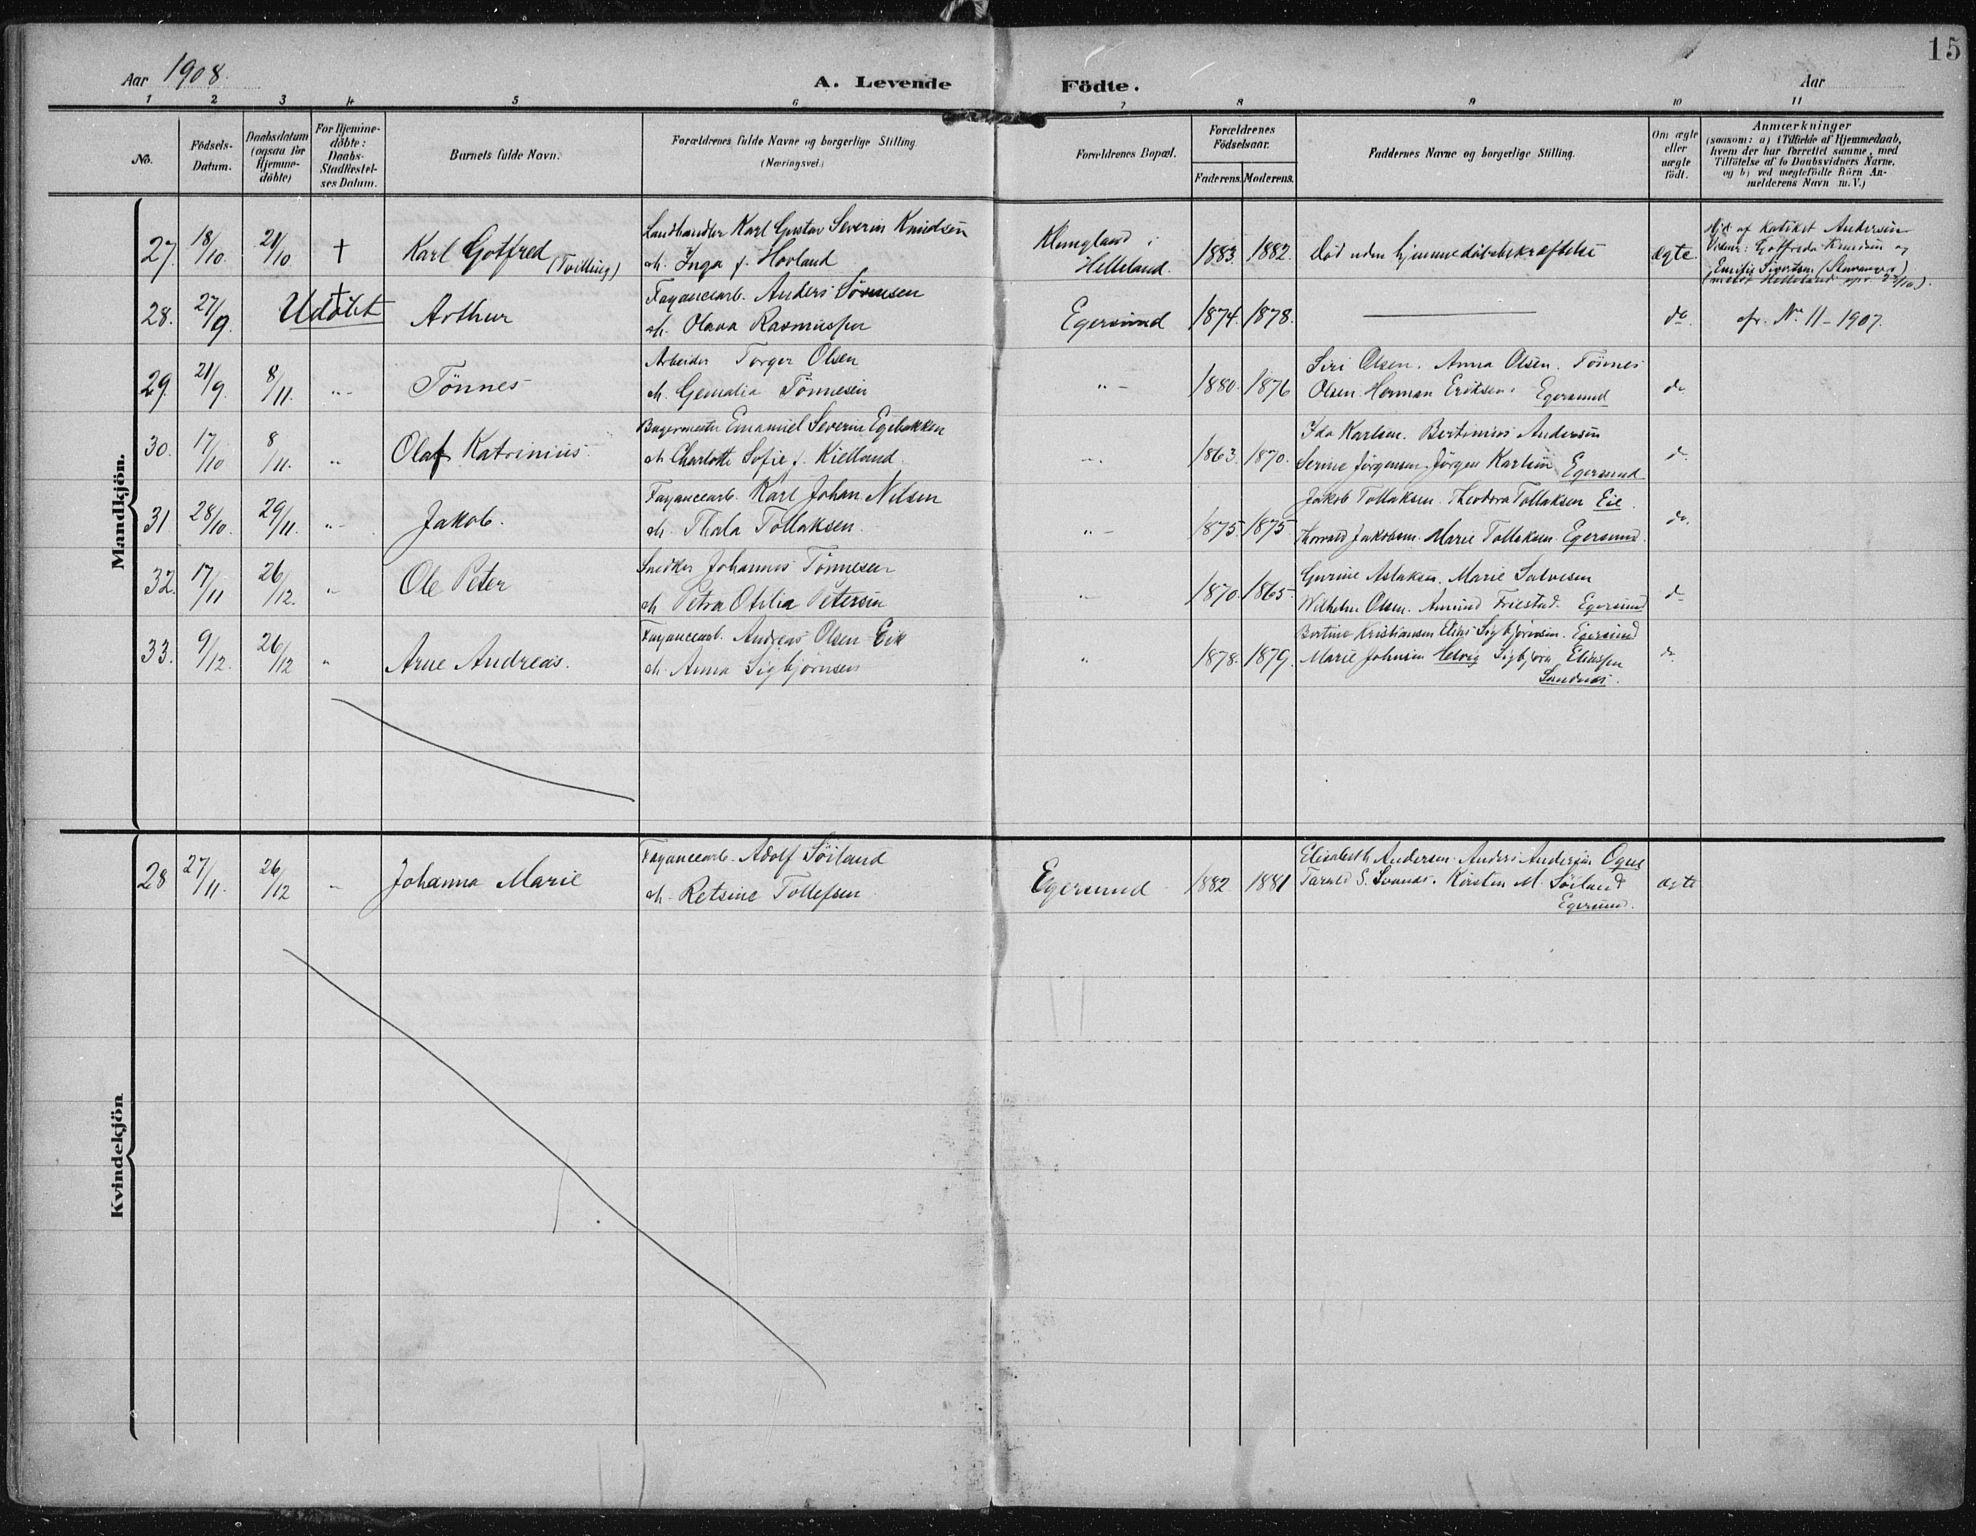 15
Aar 1908. A. Levende Födte. Aar
1 2 3 4 5 6 7 8 9 10 11
No.
Födsels-
Datum.
Daabsdatum
(ogsaa for
Hjemme-
döbte)
For Hjemme-
döbte:
Daabs-
Stadfæstel-
ses Datum.
Barnets fulde Navn.
Forældrenes fulde Navne og borgerlige Stilling
(Næringsvei.)
Forældrenes Bopæl.
Forældrenes
Födselsaar.
Faderens. Moderens.
Faddernes Navne og borgerlige Stilling.
Om ægte
eller
uægte
födt.
Anmærkninger
(saasom: a) i Tilfælde af Hjemmedaab,
hvem der har forrettet samme, med
Tilföielse af to Daabsvidners Navne,
og b) ved uegtefödte Börn An-
melderens Navn m. V.)
Mandkjön.
27. 18/10. 21/10 † Karl Gotfred (Tvilling)
Landhandler Karl Gustav Severin Knudsen
M. Inga f. Hovland
Klungland i
Helleland.
1883. 1882. Død uden hjemmedåbsbekræftelse ægte.
Hjd. af Katiket Andersen
Vidner: Gotfreda Knudsen og
Sigertsen (Stavanger)
28. 27/9. Udöbt † Arthur
Fayancearb. Anders Sørensen
M. Olava Rasmussen
Egersund 1874. 1878. do. cfr. No 11 - 1907.
29. 21/9. 8/11. " - Tönnes
Arbeider Torger Olsen
M. Gemalia Tönnesen
" - 1880. 1876
Siri Olsen. Anna Olsen. Tönnes
Olsen. Herman Eriksen. Egersund do
30. 17/10 8/11. " Olaf Katrinius.
Bagermester Emanuel Severin Egebakken
M. Charlotte Sofie f. Kielland.
" - 1863. 1870.
Ida Karlsen. Bertinius Andersen
Serine Jørgensen. Jörgen Karlsen Egersund d.
31 28/10. 29/11. " - Jakob.
Fayancearb. Karl Johan Nilsen
M. Thala Tollaksen.
" - 1875. 1875.
Jakob Tollaksen. Theodora Tollaksen Eie.
Thorvald Jakobsen. Marie Tollaksen. Egersund. do.
32. 17/11 26/12. " Ole Peter
Snedker Johannes Tönnesen
M. Petra Otilia Petersen
" - 1870. 1865.
Gurine Aslaksen. Marie Salvesen
Wilhelm Olsen. Amund Friestad. Egersund d.
33. 9/12. 26/12 " Arne Andreas.
Fayancearb. Andreas Olsen Eik
M. Anna Sigbjørnsen
" 1878. 1879.
Bertine Kristiansen Elias Sigbjörnsen. Egersund
Marie Johnsen Helvig Sigbjørn Eliassen
Sandnes. d.
Kvindekjön
28 27/11. 26/12 " Johanna Marie
Fayancearb. Adolf Söiland
M. Retsine Tollefsen
Egersund 1882 1881
Elisabeth Andersen. Anders Andersen Ogne
Tarald S. Svanes. Kirsten M. Söiland
Egersund. ægte